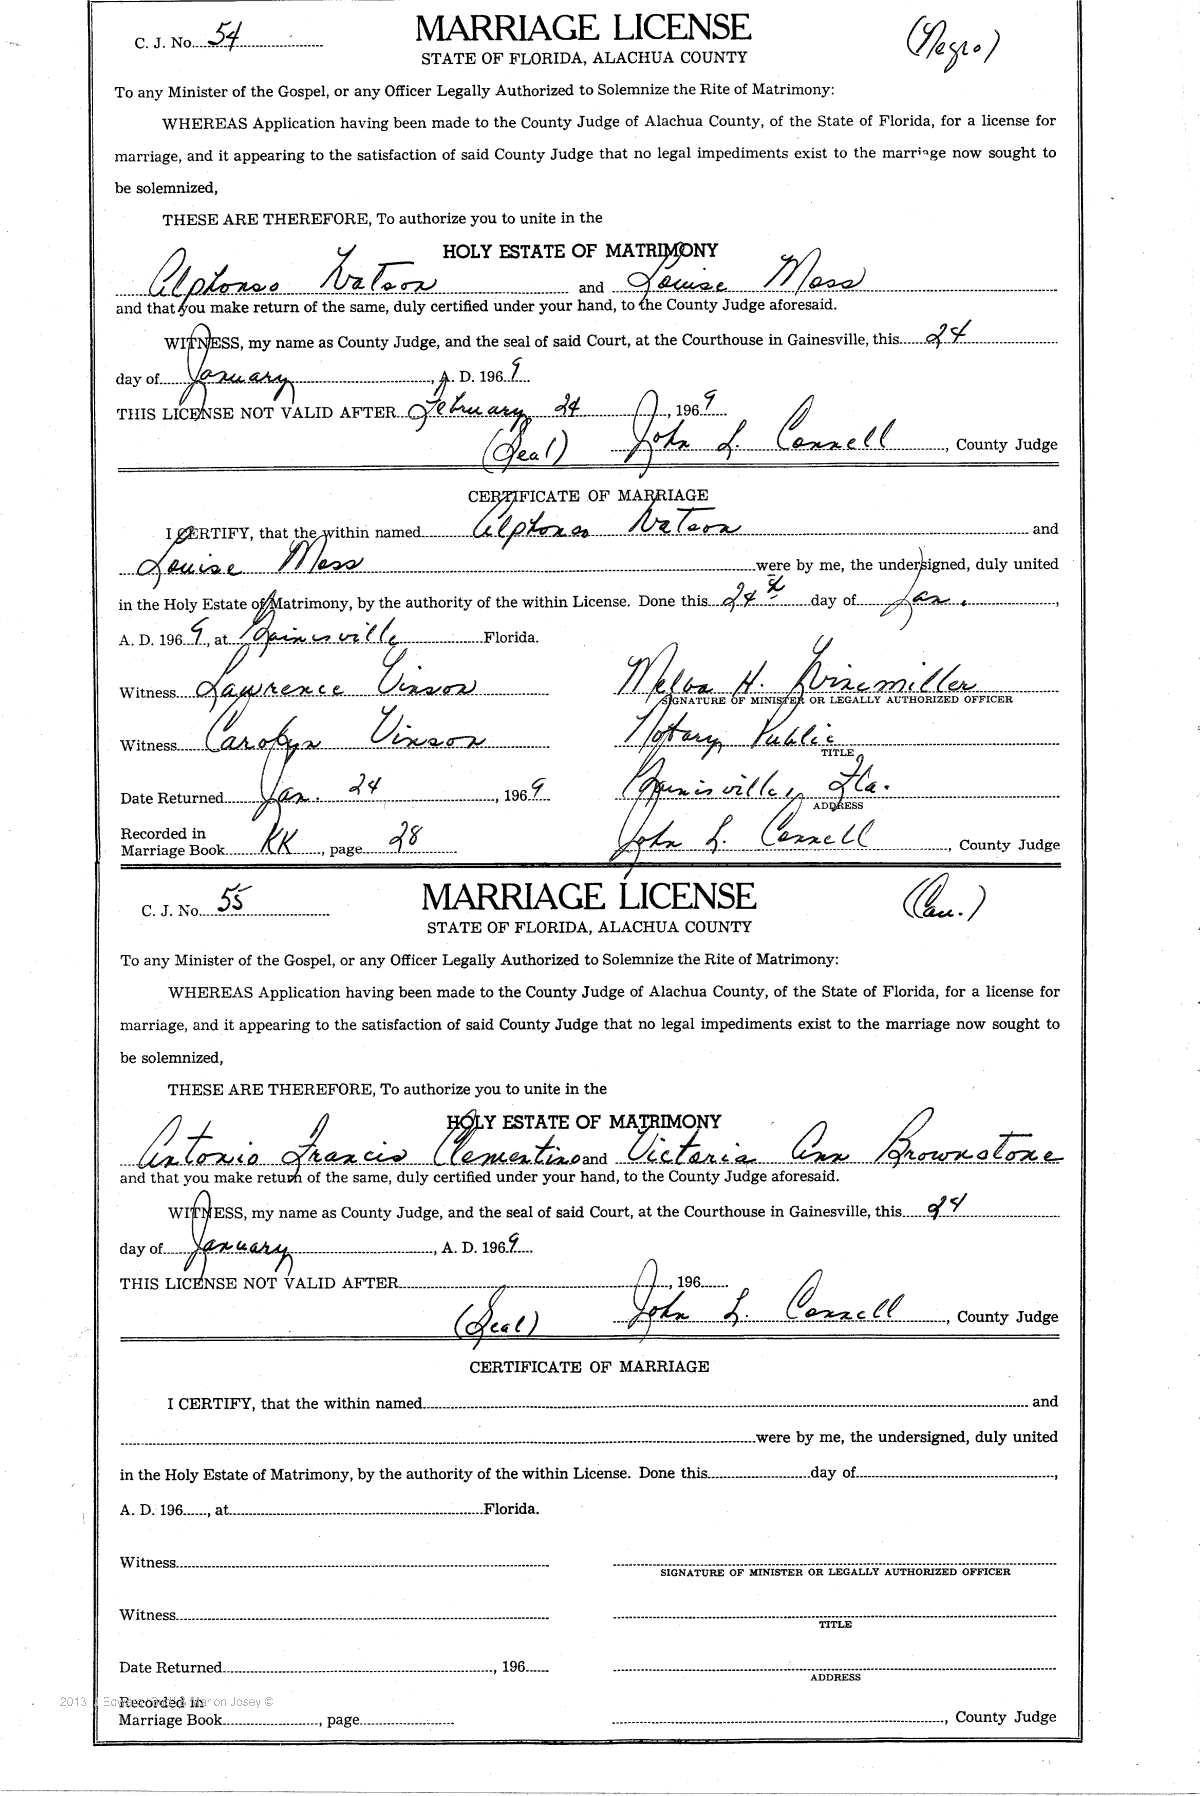 C. J. No. 54
MARRIAGE LICENSE
(Negro)
STATE OF FLORIDA, ALACHUA COUNTY
To any Minister of the Gospel, or any Officer Legally Authorized to Solemnize the Rite of Matrimony:
WHEREAS Application having been made to the County Judge of Alachua County, of the State of Florida, for a license for
marriage, and it appearing to the satisfaction of said County Judge that no legal impediments exist to the marriage now sought to
be solemnized,
THESE ARE THEREFORE, To authorize you to unite in the
HOLY ESTATE OF MATRIMONY
Alphonso Watson and Louise Moss
and that you make return of the same, duly certified under your hand, to the County Judge aforesaid.
WITNESS, my name as County Judge, and the seal of said Court, at the Courthouse in Gainesville, this 24
day of January, A. D. 1969
THIS LICENSE NOT VALID AFTER February 24, 1969
(Seal) John L. Connell, County Judge
CERTIFICATE OF MARRIAGE
I CERTIFY, that the within named Alphonso Watson and
Louise Moss were by me, the undersigned, duly united
in the Holy Estate of Matrimony, by the authority of the within License. Done this 24th day of Jan.,
A. D. 1969, at Gainesville Florida.
Witness Lawrence Vinson Melva H. Winemiller
SIGNATURE OF MINISTER OR LEGALLY AUTHORIZED OFFICER
Witness Carolyn Vinson Notary Public
TITLE
Date Returned Jan. 24, 1969 Gainesville, Fla.
ADDRESS
Recorded in
Marriage Book KK, page 28 John L. Connell, County Judge
C. J. No. 55
MARRIAGE LICENSE
(Cau.)
STATE OF FLORIDA, ALACHUA COUNTY
To any Minister of the Gospel, or any Officer Legally Authorized to Solemnize the Rite of Matrimony:
WHEREAS Application having been made to the County Judge of Alachua County, of the State of Florida, for a license for
marriage, and it appearing to the satisfaction of said County Judge that no legal impediments exist to the marriage now sought to
be solemnized,
THESE ARE THEREFORE, To authorize you to unite in the
HOLY ESTATE OF MATRIMONY
Antonio Francis Clementino and Victoria Ann Brownstone
and that you make return of the same, duly certified under your hand, to the County Judge aforesaid.
WITNESS, my name as County Judge, and the seal of said Court, at the Courthouse in Gainesville, this 24
day of January, A. D. 1969
THIS LICENSE NOT VALID AFTER, 196
(Seal) John L. Connell, County Judge
CERTIFICATE OF MARRIAGE
I CERTIFY, that the within named and
were by me, the undersigned, duly united
in the Holy Estate of Matrimony, by the authority of the within License. Done this day of,
A. D. 196, at Florida.
Witness
SIGNATURE OF MINISTER OR LEGALLY AUTHORIZED OFFICER
Witness
TITLE
Date Returned, 196
ADDRESS
2013 Josey ©
Recorded in
Marriage Book, page, County Judge